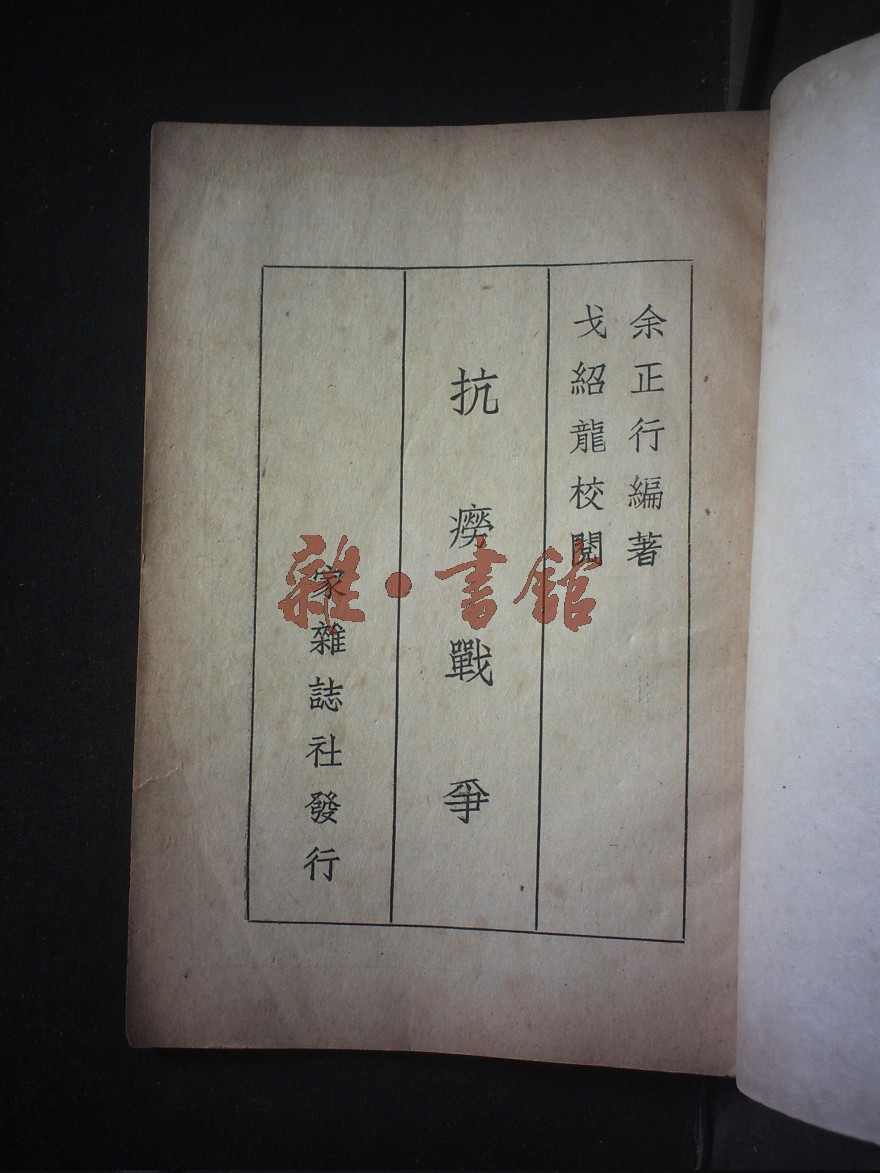 余正行編著
戈紹龍校閱
抗癆戰爭
家雜誌社發行
雜·書館